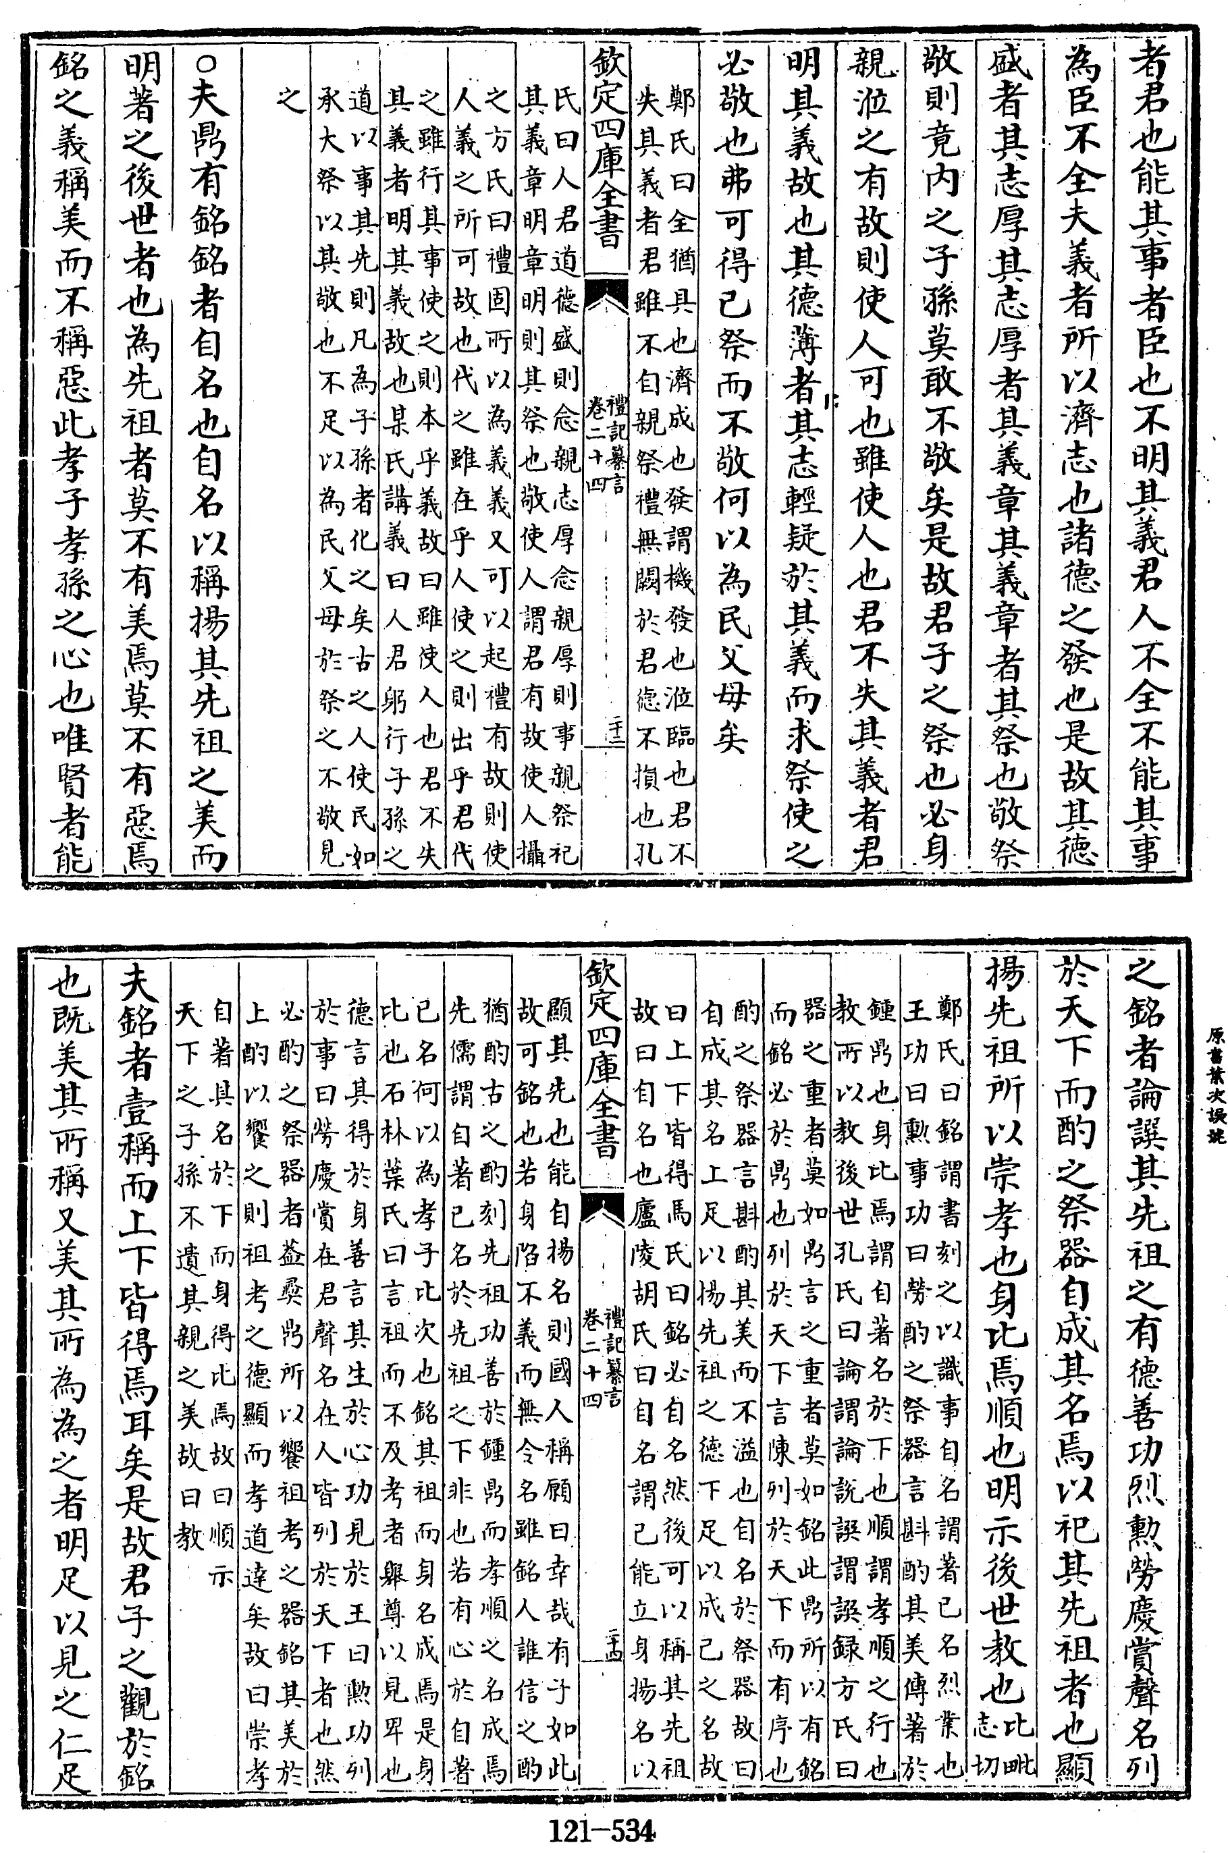 者君也能其事者臣也不明其義君人不全不能其事
為臣不全夫義者所以濟志也諸德之發也是故其德
盛者其志厚其志厚者其義章其義章者其祭也敬祭
敬則竟內之子孫莫敢不敬矣是故君子之祭也必身
親涖之有故則使人可也雖使人也君不失其義者君
明其義故也其德薄者其志輕疑於其義而求祭使之
必敬也弗可得已祭而不敬何以為民父母矣
鄭氏曰全猶具也濟成也發謂機發也涖臨也君不
失其義者君雖不自親祭禮無闕於君德不損也孔
欽定四庫全書
禮記纂言
卷二十四
二十三
氏曰人君道德盛則念親志厚念親厚則事親祭祀
其義章明章明則其祭也敬使人謂君有故使人攝
之方氏曰禮固所以為義義又可以起禮有故則使
人義之所可故也代之雖在乎人使之則出乎君代
之雖行其事使之則本乎義故曰雖使人也君不失
其義者明其義故也某氏講義曰人君躬行子孫之
道以事其先則凡為子孫者化之矣古之人使民如
承大祭以其敬也不足以為民父母於祭之不敬見
之
○夫鼎有銘銘者自名也自名以稱揚其先祖之美而
明著之後世者也為先祖者莫不有美焉莫不有惡焉
銘之義稱美而不稱惡此孝子孝孫之心也唯賢者能
原書葉次誤號
之銘者論譔其先祖之有德善功烈勲勞慶賞聲名列
於天下而酌之祭器自成其名焉以祀其先祖者也顯
揚先祖所以崇孝也身比焉順也明示後世教也
比毗
志切
鄭氏曰銘謂書刻之以識事自名謂著已名烈業也
王功曰勲事功曰勞酌之祭器言斟酌其美傳著於
鍾鼎也身比焉謂自著名於下也順謂孝順之行也
教所以教後世孔氏曰論謂論說譔謂譔録方氏曰
器之重者莫如鼎言之重者莫如銘此鼎所以有銘
而銘必於鼎也列於天下言陳列於天下而有序也
酌之祭器言斟酌其美而不溢也自名於祭器故曰
自成其名上足以揚先祖之德下足以成已之名故
曰上下皆得馬氏曰銘必自名然後可以稱其先祖
故曰自名也廬陵胡氏曰自名謂已能立身揚名以
欽定四庫全書
禮記纂言
卷二十四
二十四
顯其先也能自揚名則國人稱願曰幸哉有子如此
故可銘也若身陷不義而無令名雖銘人誰信之酌
猶酌古之酌刻先祖功善於鍾鼎而孝順之名成焉
先儒謂自著已名於先祖之下非也若有心於自著
已名何以為孝子比次也銘其祖而身名成焉是身
比也石林葉氏曰言祖而不及考者舉尊以見卑也
德言其得於身善言其生於心功見於王曰勲功列
於事曰勞慶賞在君聲名在人皆列於天下者也然
必酌之祭器者葢彝鼎所以饗祖考之器銘其美於
上酌以饗之則祖考之德顯而孝道達矣故曰崇孝
自著其名於下而身得比焉故曰順示
天下之子孫不遺其親之美故曰教
夫銘者壹稱而上下皆得焉耳矣是故君子之觀於銘
也既美其所稱又美其所為為之者明足以見之仁足
121-534